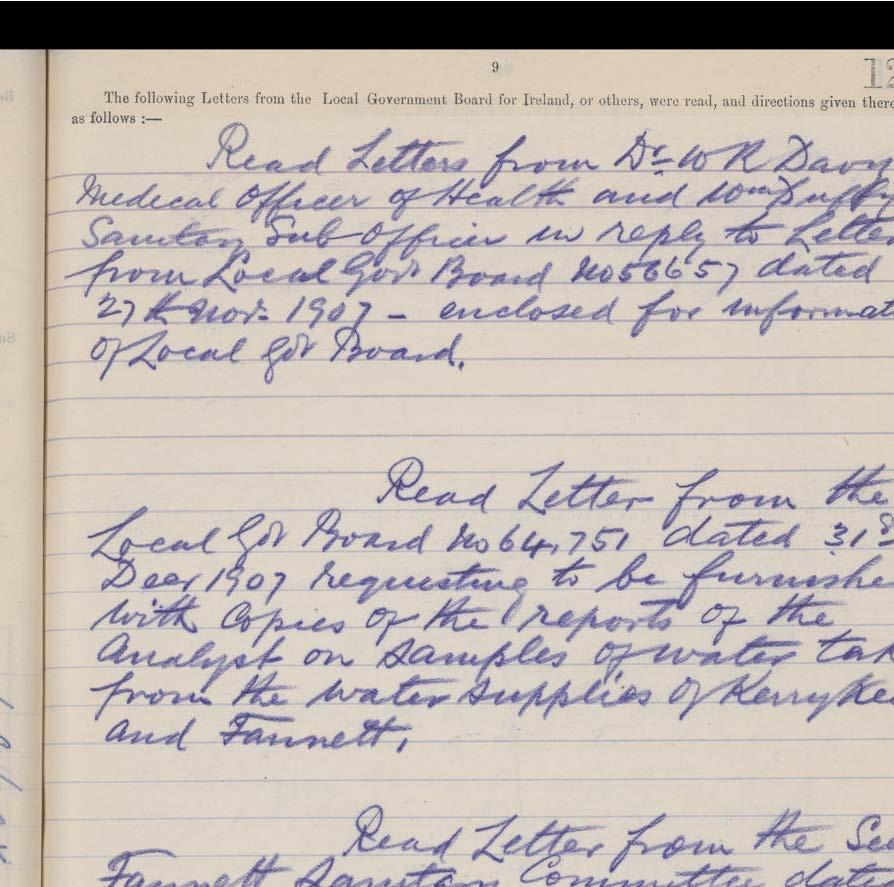 9
12
The following Letters from the Local Government Board for Ireland, or others, were read, and directions given there
as follows :—
Read Letters from Dr W R Davy
Medecal Officer of Health and Wm Duffy
Sanitary Sub Officer in reply to Lette
from Local Govt Board No 56657 dated
27th Novr 1907 - enclosed for informat
of Local Govt Board.
Read Letter from the
Local Govt Board No 64,751 dated 31st
Decr 1907 requesting to be furnishe
with Copies of the reports of the
Analyst on samples of water tak
from the water supplies of Kerryke
and Fannett.
Read Letter from the Se
Fannett Sanitary Committee date